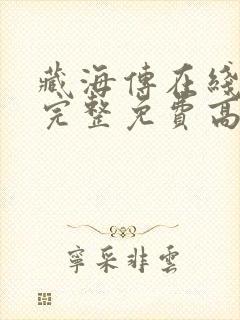 藏海傳在綫
完整免費高
寧采非雲